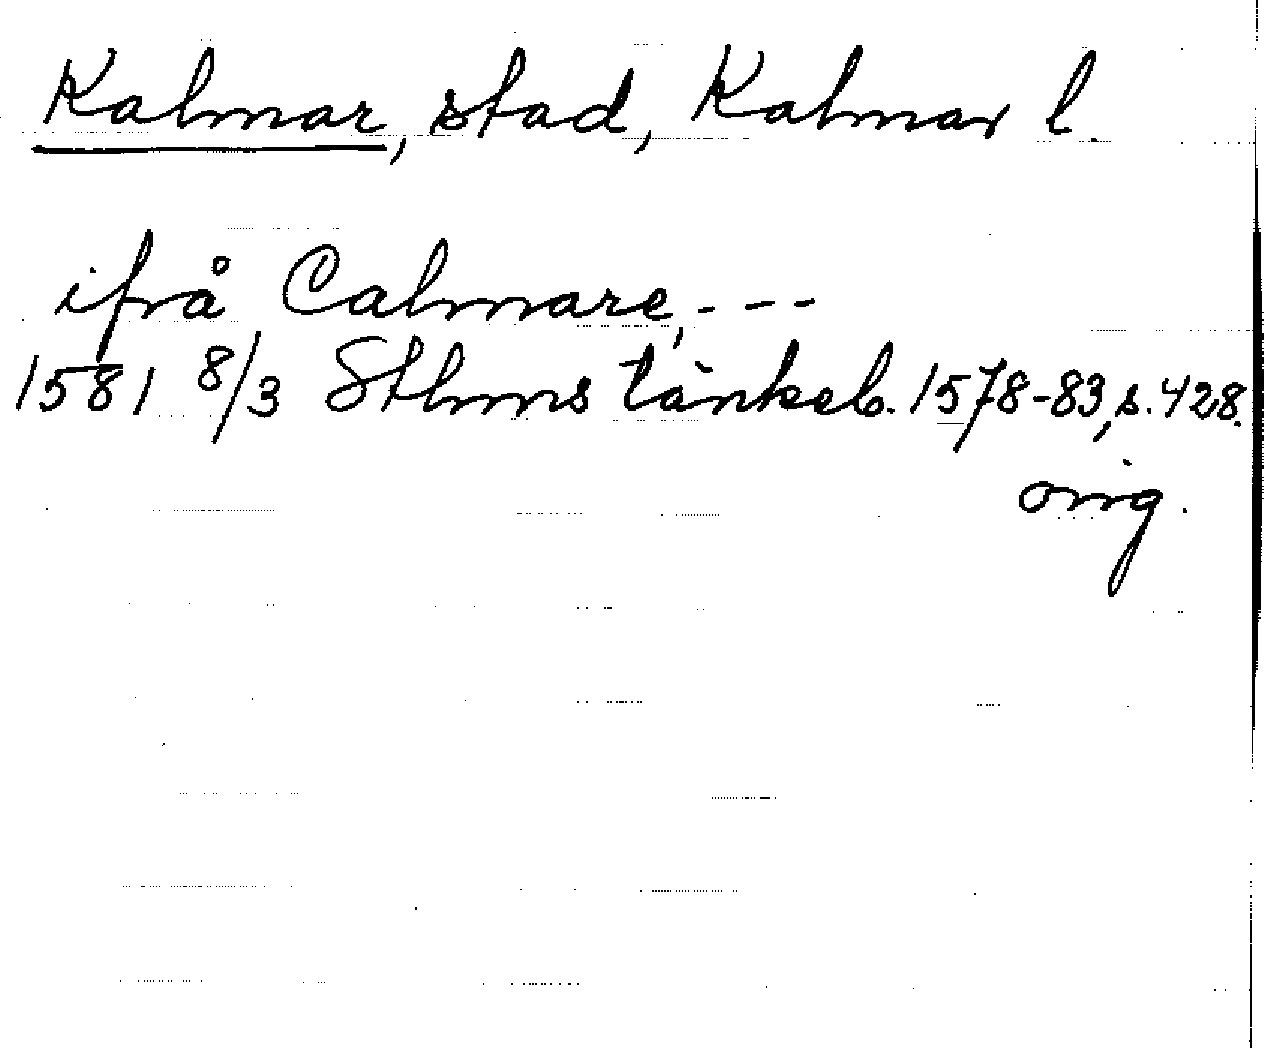 Kalmar, stad, Kalmar l.
ifrå Calmare, ---
1581 8/3 Sthms tänkeb. 1578-83, s. 428.
orig.